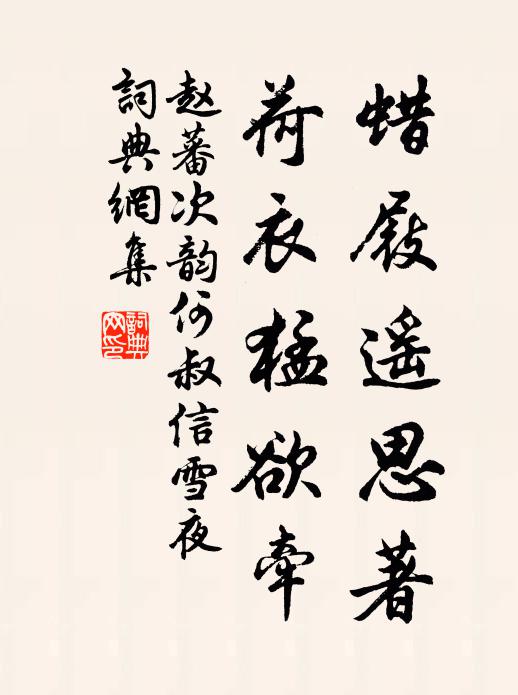 蜡屐遥思著
荷衣猛欲牵
赵蕃次韵何叔信雪夜
词典網集
詞典
网印